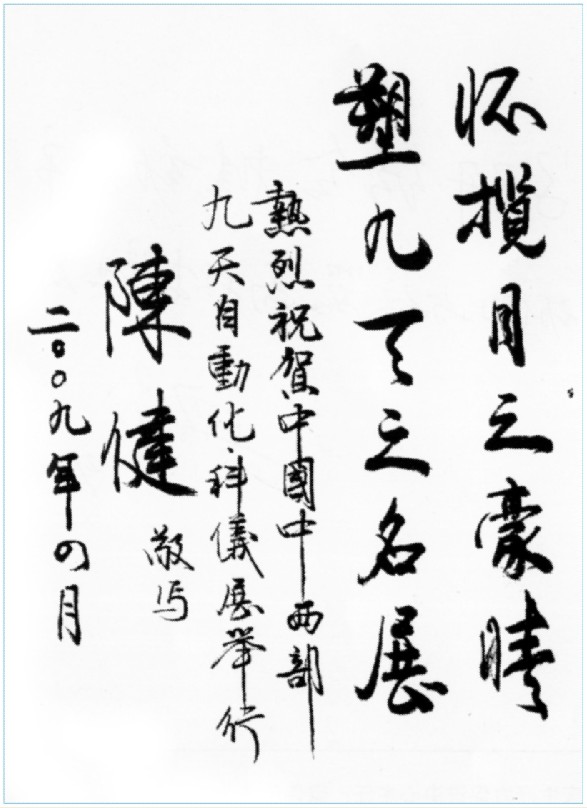 怀揽月之豪晴
塑九天之名展
熱烈祝賀中國中西部
九天自動化·科儀展举行
陳健
敬写
二〇〇九年四月